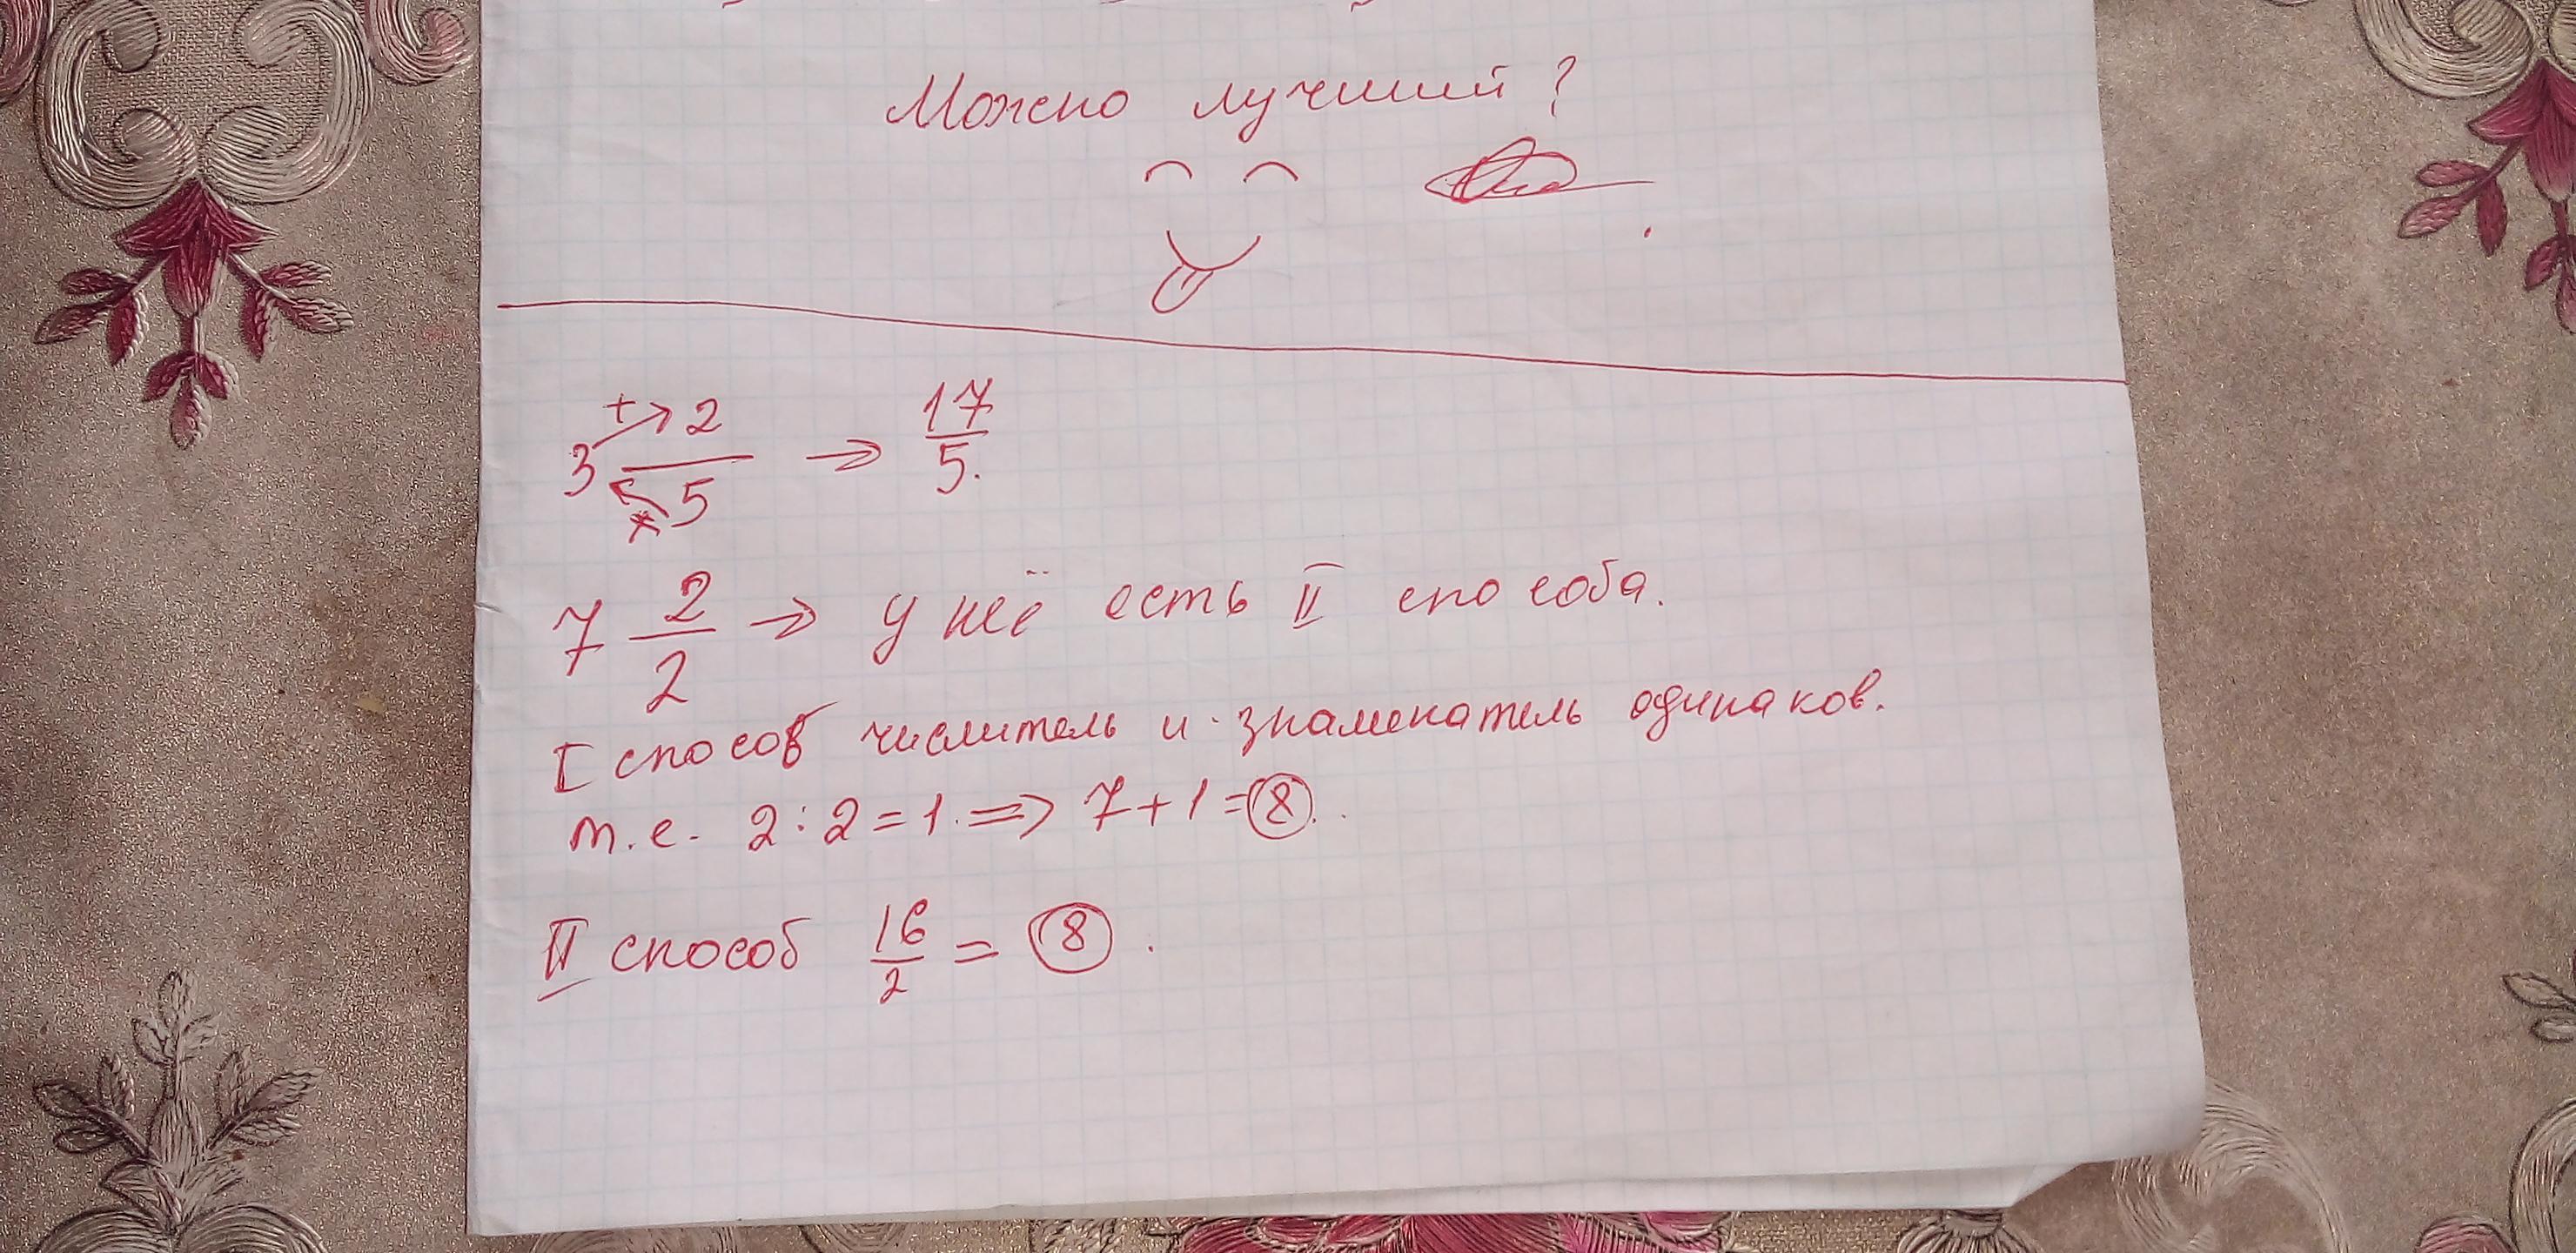 Можно лучший?
3 2/5 → 17/5.
+
*
7 2/2 → у неё есть II способа.
I способ числитель и знаменатель одинаков.
т.е. 2:2=1. ⇒ 7+1=8.
II способ 16/2 = 8.